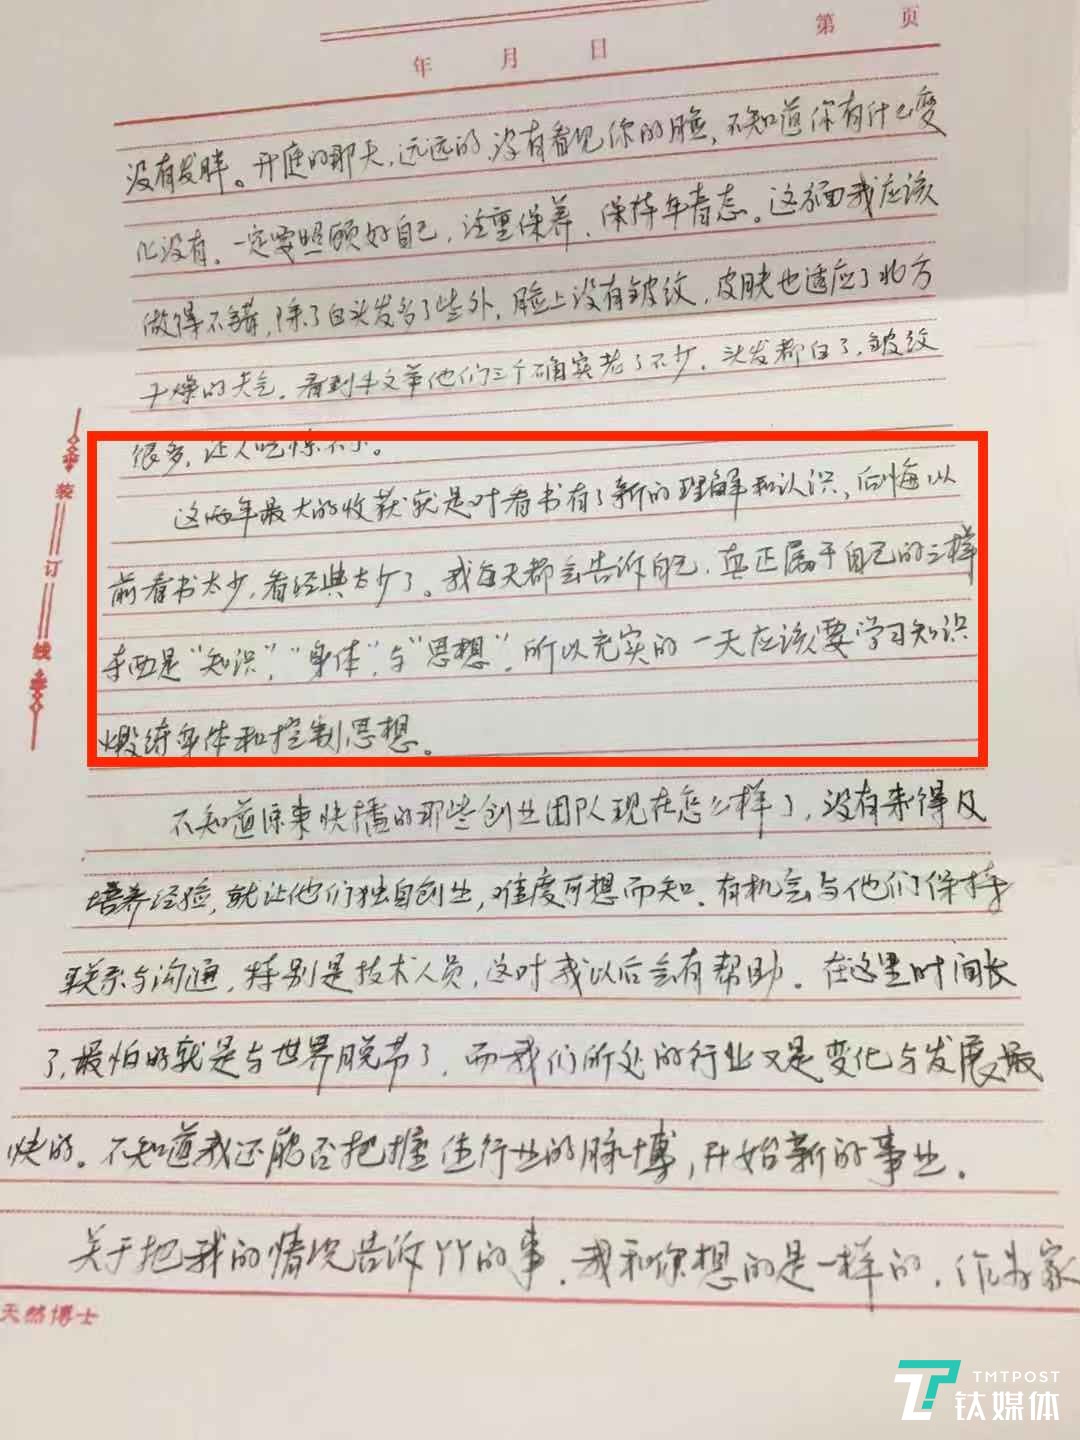 第 页
年 月 日
没有发胖。开庭的那天,远远的,没有看见你的脸,不知道你有什么变
化没有,一定要照顾好自己,注重保养,保持年青态。这方面我应该
做得不错,除了白头发多了些外,脸上没有皱纹,皮肤也适应了北方
干燥的天气。看到牛文举他们三个确实老了不少,头发都白了,皱纹
很多,让人吃惊不小。
这两年最大的收获就是对看书有了新的理解和认识,后悔以
前看书太少,看经典太少了。我每天都会告诉自己,真正属于自己的三样
东西是“知识”,“身体”,与“思想”,所以充实的一天应该要学习知识
煅练身体和控制思想。
不知道原来快播的那些创业团队现在怎么样了,没有来得及
培养经验,就让他们独自创业,难度可想而知。有机会与他们保持
联系与沟通,特别是技术人员,这对我以后会有帮助。在这里时间长
了,最怕的就是与世界脱节了,而我们所处的行业又是变化与发展最
快的。不知道我还能否把握住行业的脉博,开始新的事业。
关于把我的情况告诉丫丫的事,我和你想的是一样的,作为家
装订线
天然博士
TMTPOST
钛媒体